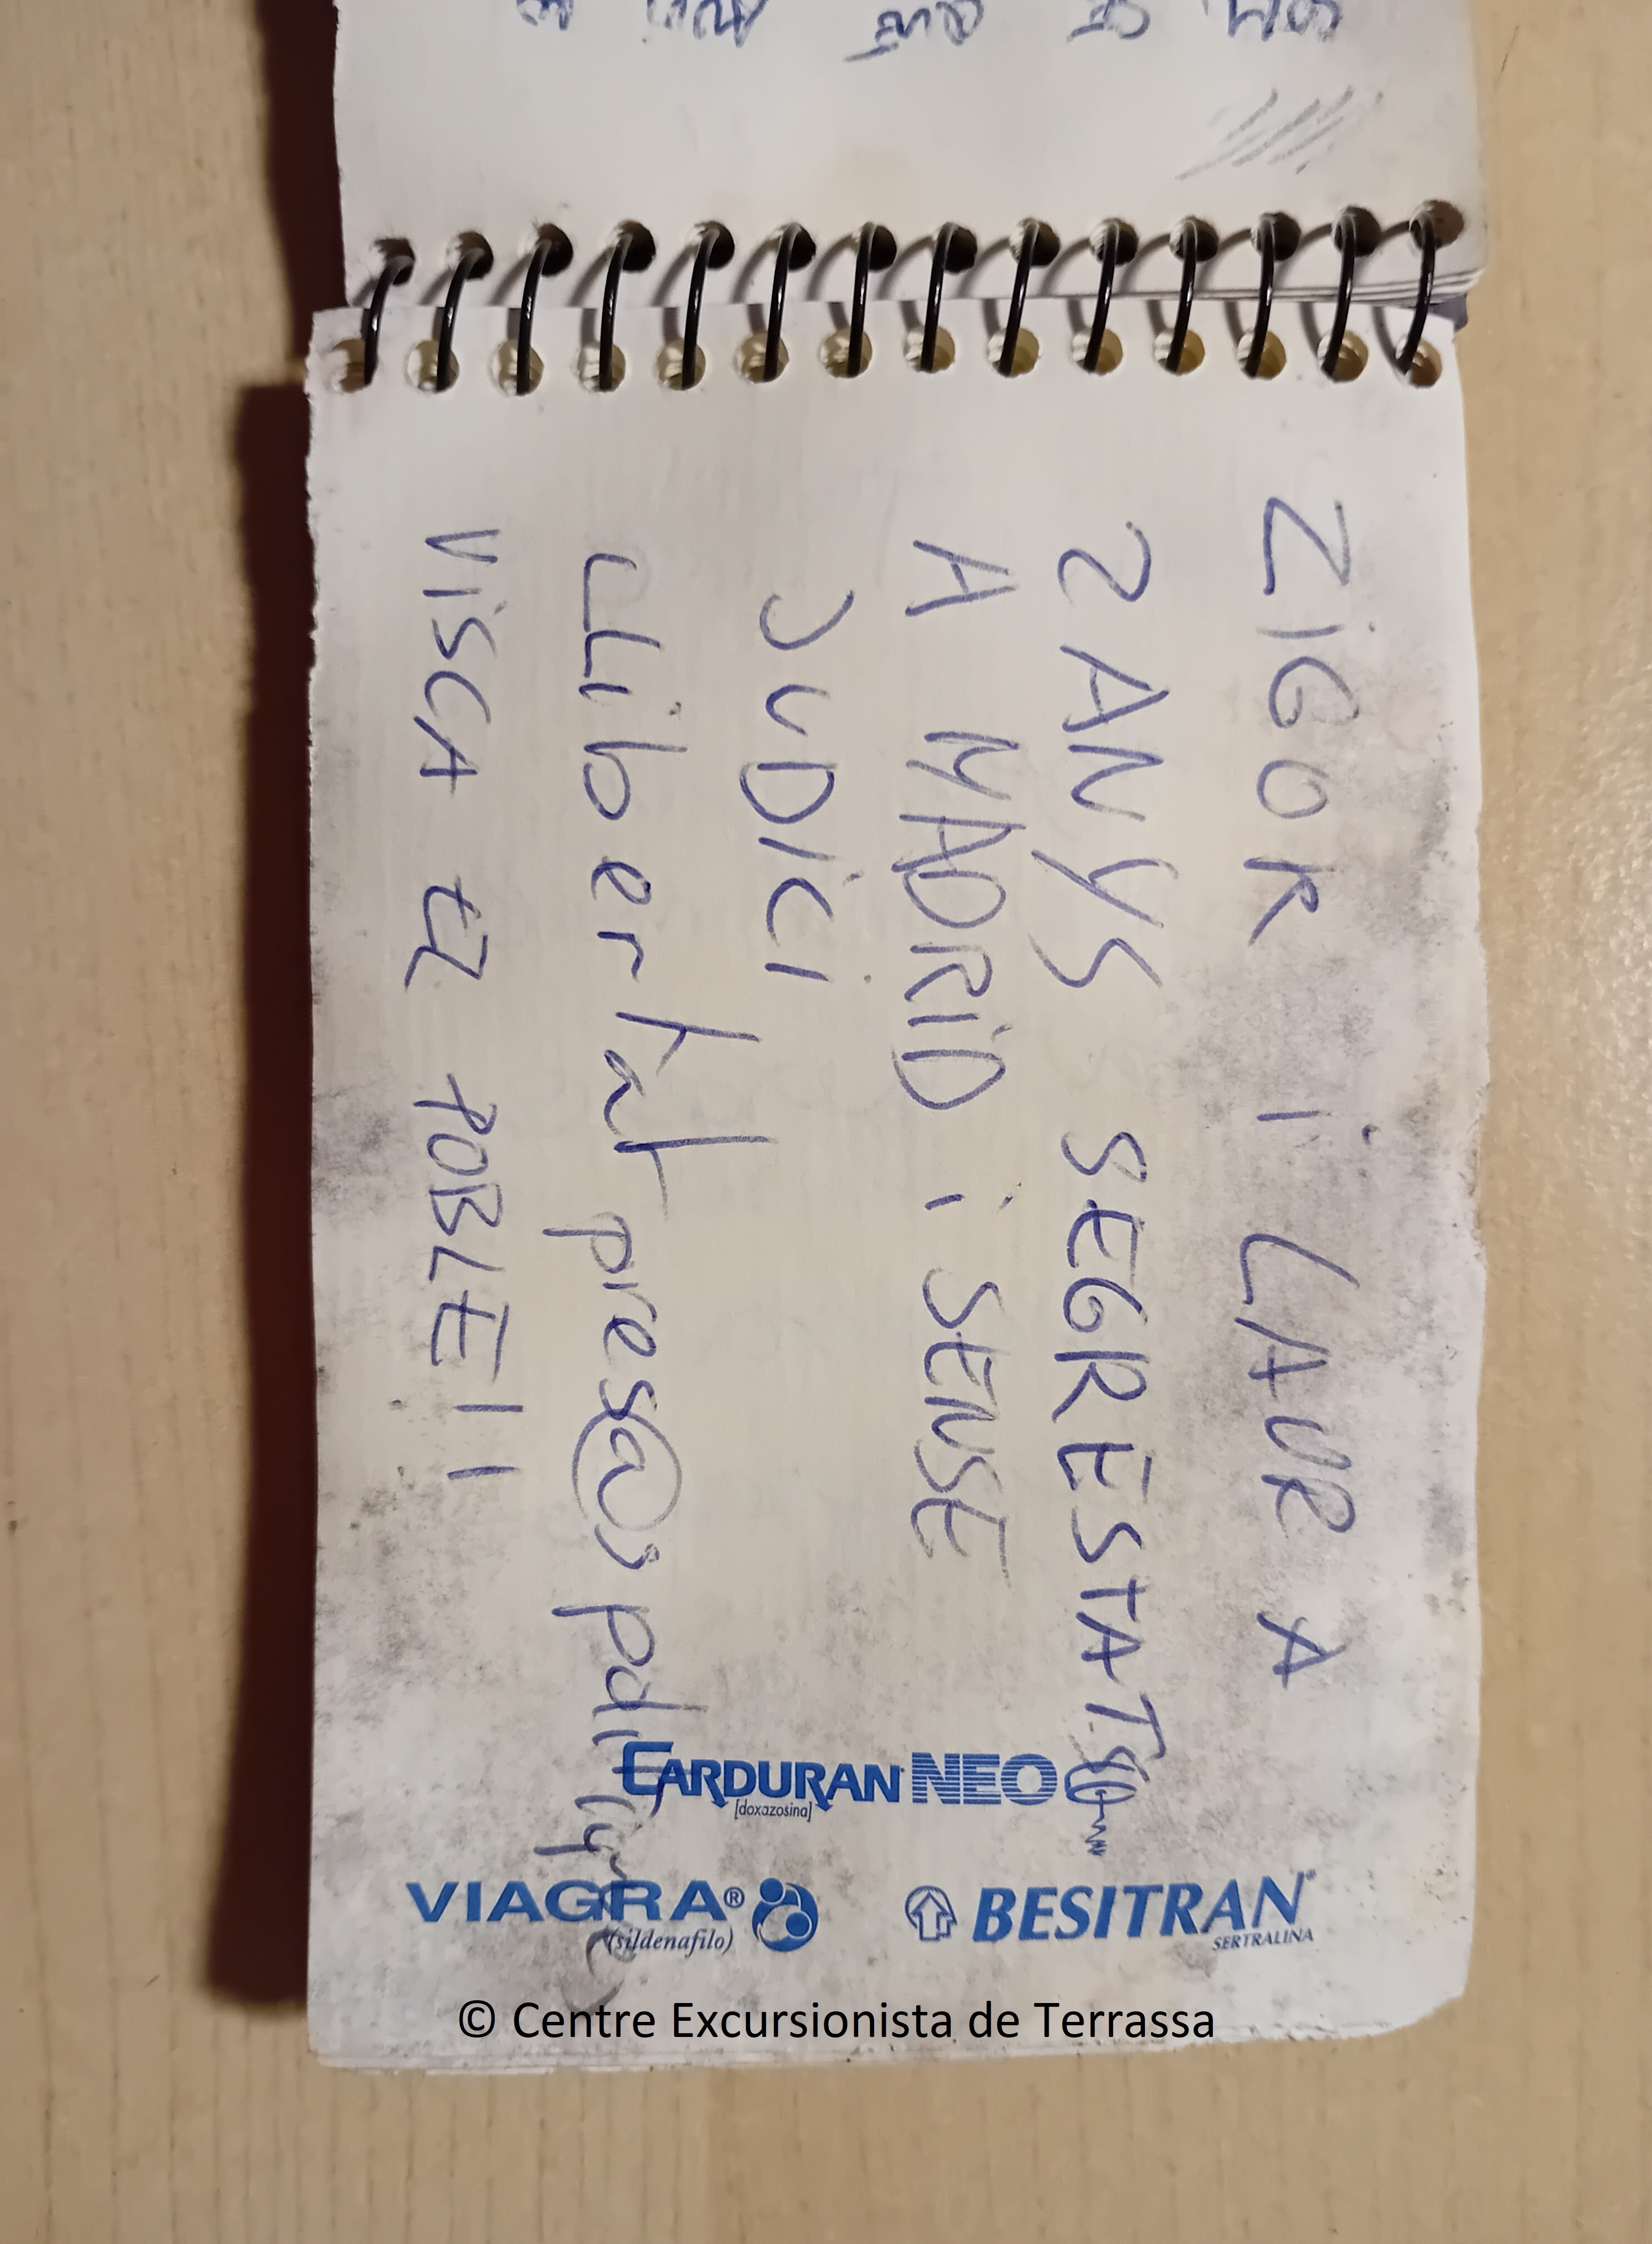 ZIGOR i LAURA
2 ANYS SEGRESTATS
A MADRID i SENSE
JUDICI
LLibertat pres@s
VISCA EL POBLE!!
CARDURAN NEO
[doxazosina]
VIAGRA®
(sildenafilo)
BESITRAN®
SERTRALINA
© Centre Excursionista de Terrassa